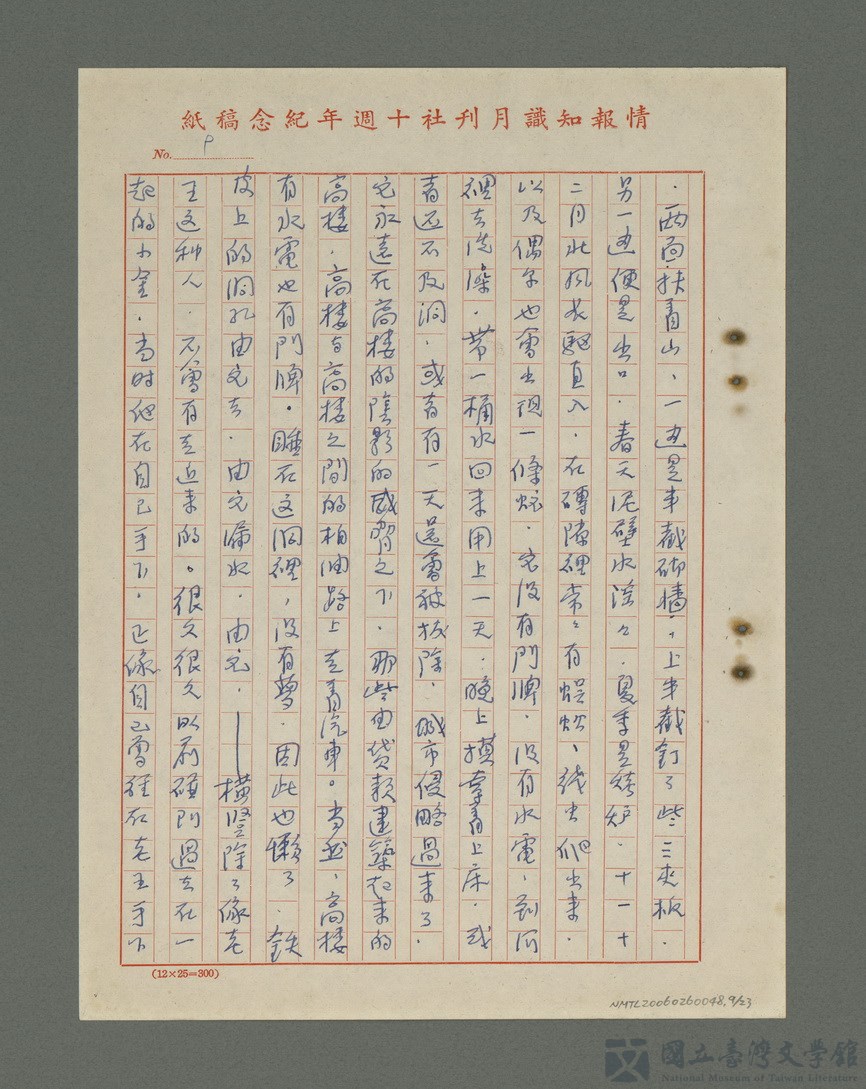 情報知識月刊社十週年紀念稿紙
No. 9
．兩面扶青山，一邊是半截磚牆，上半截釘了些三夾板．
另一邊便是出口．春天泥壁水涂々．夏季是烤炉．十一十
二月北風長驅直入．在磚隙裡常々有蜈蚣、线虫爬出來．
以及偶尔也會出現一條蛇．它没有門牌．没有水電．到河
裡去洗澡．帶一桶水回來用上一天．晚上摸着上床．或
者还不及洞．或者有一天還會被拔除．城市侵略過来了．
它永遠在高樓的陰影的威脅之下．那些由貸款建築起来的
高樓．高樓与高樓之間的柏油路上走着汽車。当然，高樓
有水電也有門牌。睡在这洞裡，没有夢．因此也懶了．鉄
皮上的洞孔由它去．由它漏水．由它．——橫豎除了像老
王这种人．不會有走近来的。很久很久以前礦門過去在一
起的小金．当时他在自己手下．正像自己曾經在老王手下
(12×25=300)
NMTL20060260048,9/23
國立臺灣文學館
National Museum of Taiwan Literature